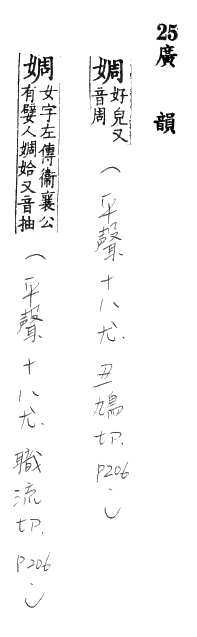 25廣韻
婤 好皃又音周 (平聲十八尤.丑鳩切.P206)
婤 女字左傳衞襄公有嬖人婤姶又音抽 (平聲十八尤.職流切.P206)